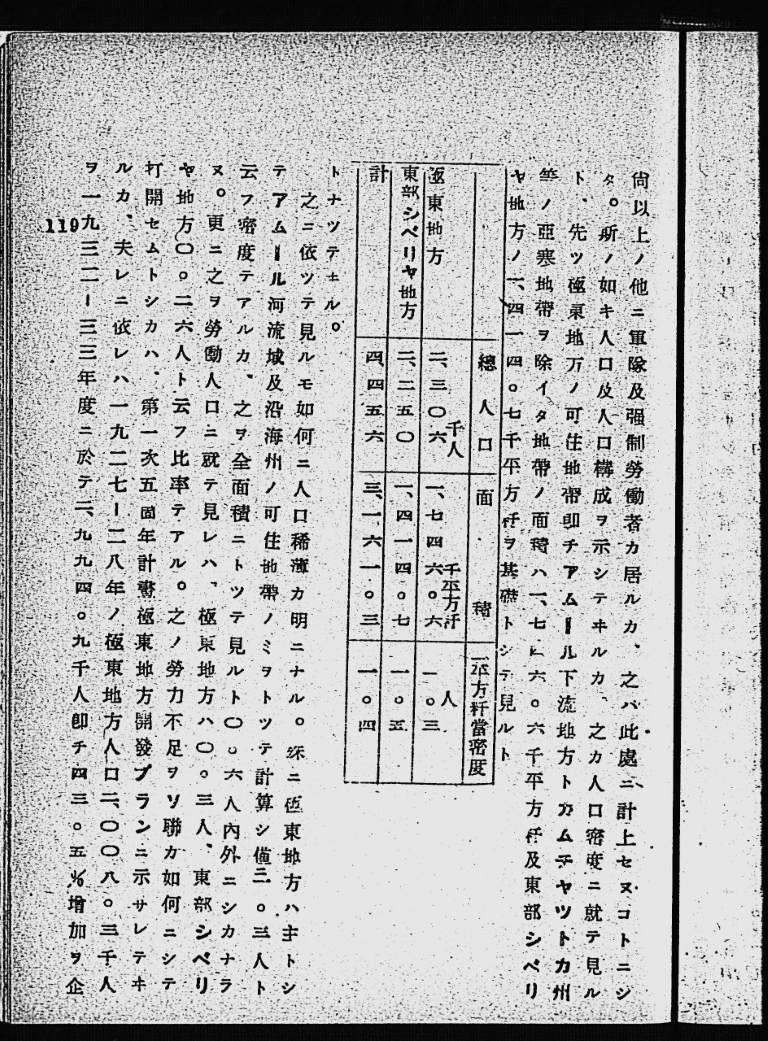 尙以上ノ他ニ軍隊及强制勞働者カ居ルカ、之ハ此處ニ計上セヌコトニシ
タ。斯ノ如キ人口及人口構成ヲ示シテヰルカ、之カ人口密度ニ就テ見ル
ト、先ツ極東地方ノ可住地帶卽チアムール下流地方トカムチヤツトカ州
等ノ亞寒地帶ヲ除イタ地帶ノ面積ハ一、七四六。六千平方粁及東部シベリ
ヤ地方ノ一、四一四。七千平方粁ヲ基礎トシテ見ルト
總人口 面積 一平方粁當密度
極東地方 二、三〇六千人 一、七四六。六千平方粁 一。三人
東部シベリヤ地方 二、二五〇 一、四一四。七 一。五
計 四、四五六 三、一六一。三 一。四
トナツテヰル。
之ニ依ツテ見ルモ如何ニ人口稀薄カ明ニナル。殊ニ極東地方ハ主トシ
テアムール河流域及沿海州ノ可住地帶ノミヲトツテ計算シ僅一。三人ト
云フ密度テアルカ、之ヲ全面積ニトツテ見ルト〇。六人內外ニシカナラ
ヌ。更ニ之ヲ勞働人口ニ就テ見レハ、極東地方ハ〇。三人、東部シベリ
ヤ地方〇。二六人ト云フ比率テアル。之ノ勞力不足ヲソ聯カ如何ニシテ
打開セムトシカハ、第一次五固年計畫極東地方開發プランニ示サレテヰ
ルカ、夫レニ依レハ一九二七ー二八年ノ極東地方人口二、〇〇八。三千人
ヲ一九三二ー三三年度ニ於テ二、九九四。九千人卽チ四三。五%增加ヲ企
119